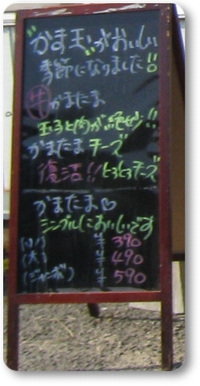 "かま玉"がおいしい
季節になりました!!
牛かまたま
玉子と肉が絶妙!!
かまたまチーズ
復活!! とろとろチーズ
かまたま♡
シンプルにおいしいです
(小) ¥ 390
(大) ¥ 490
(ジャンボ) ¥ 590